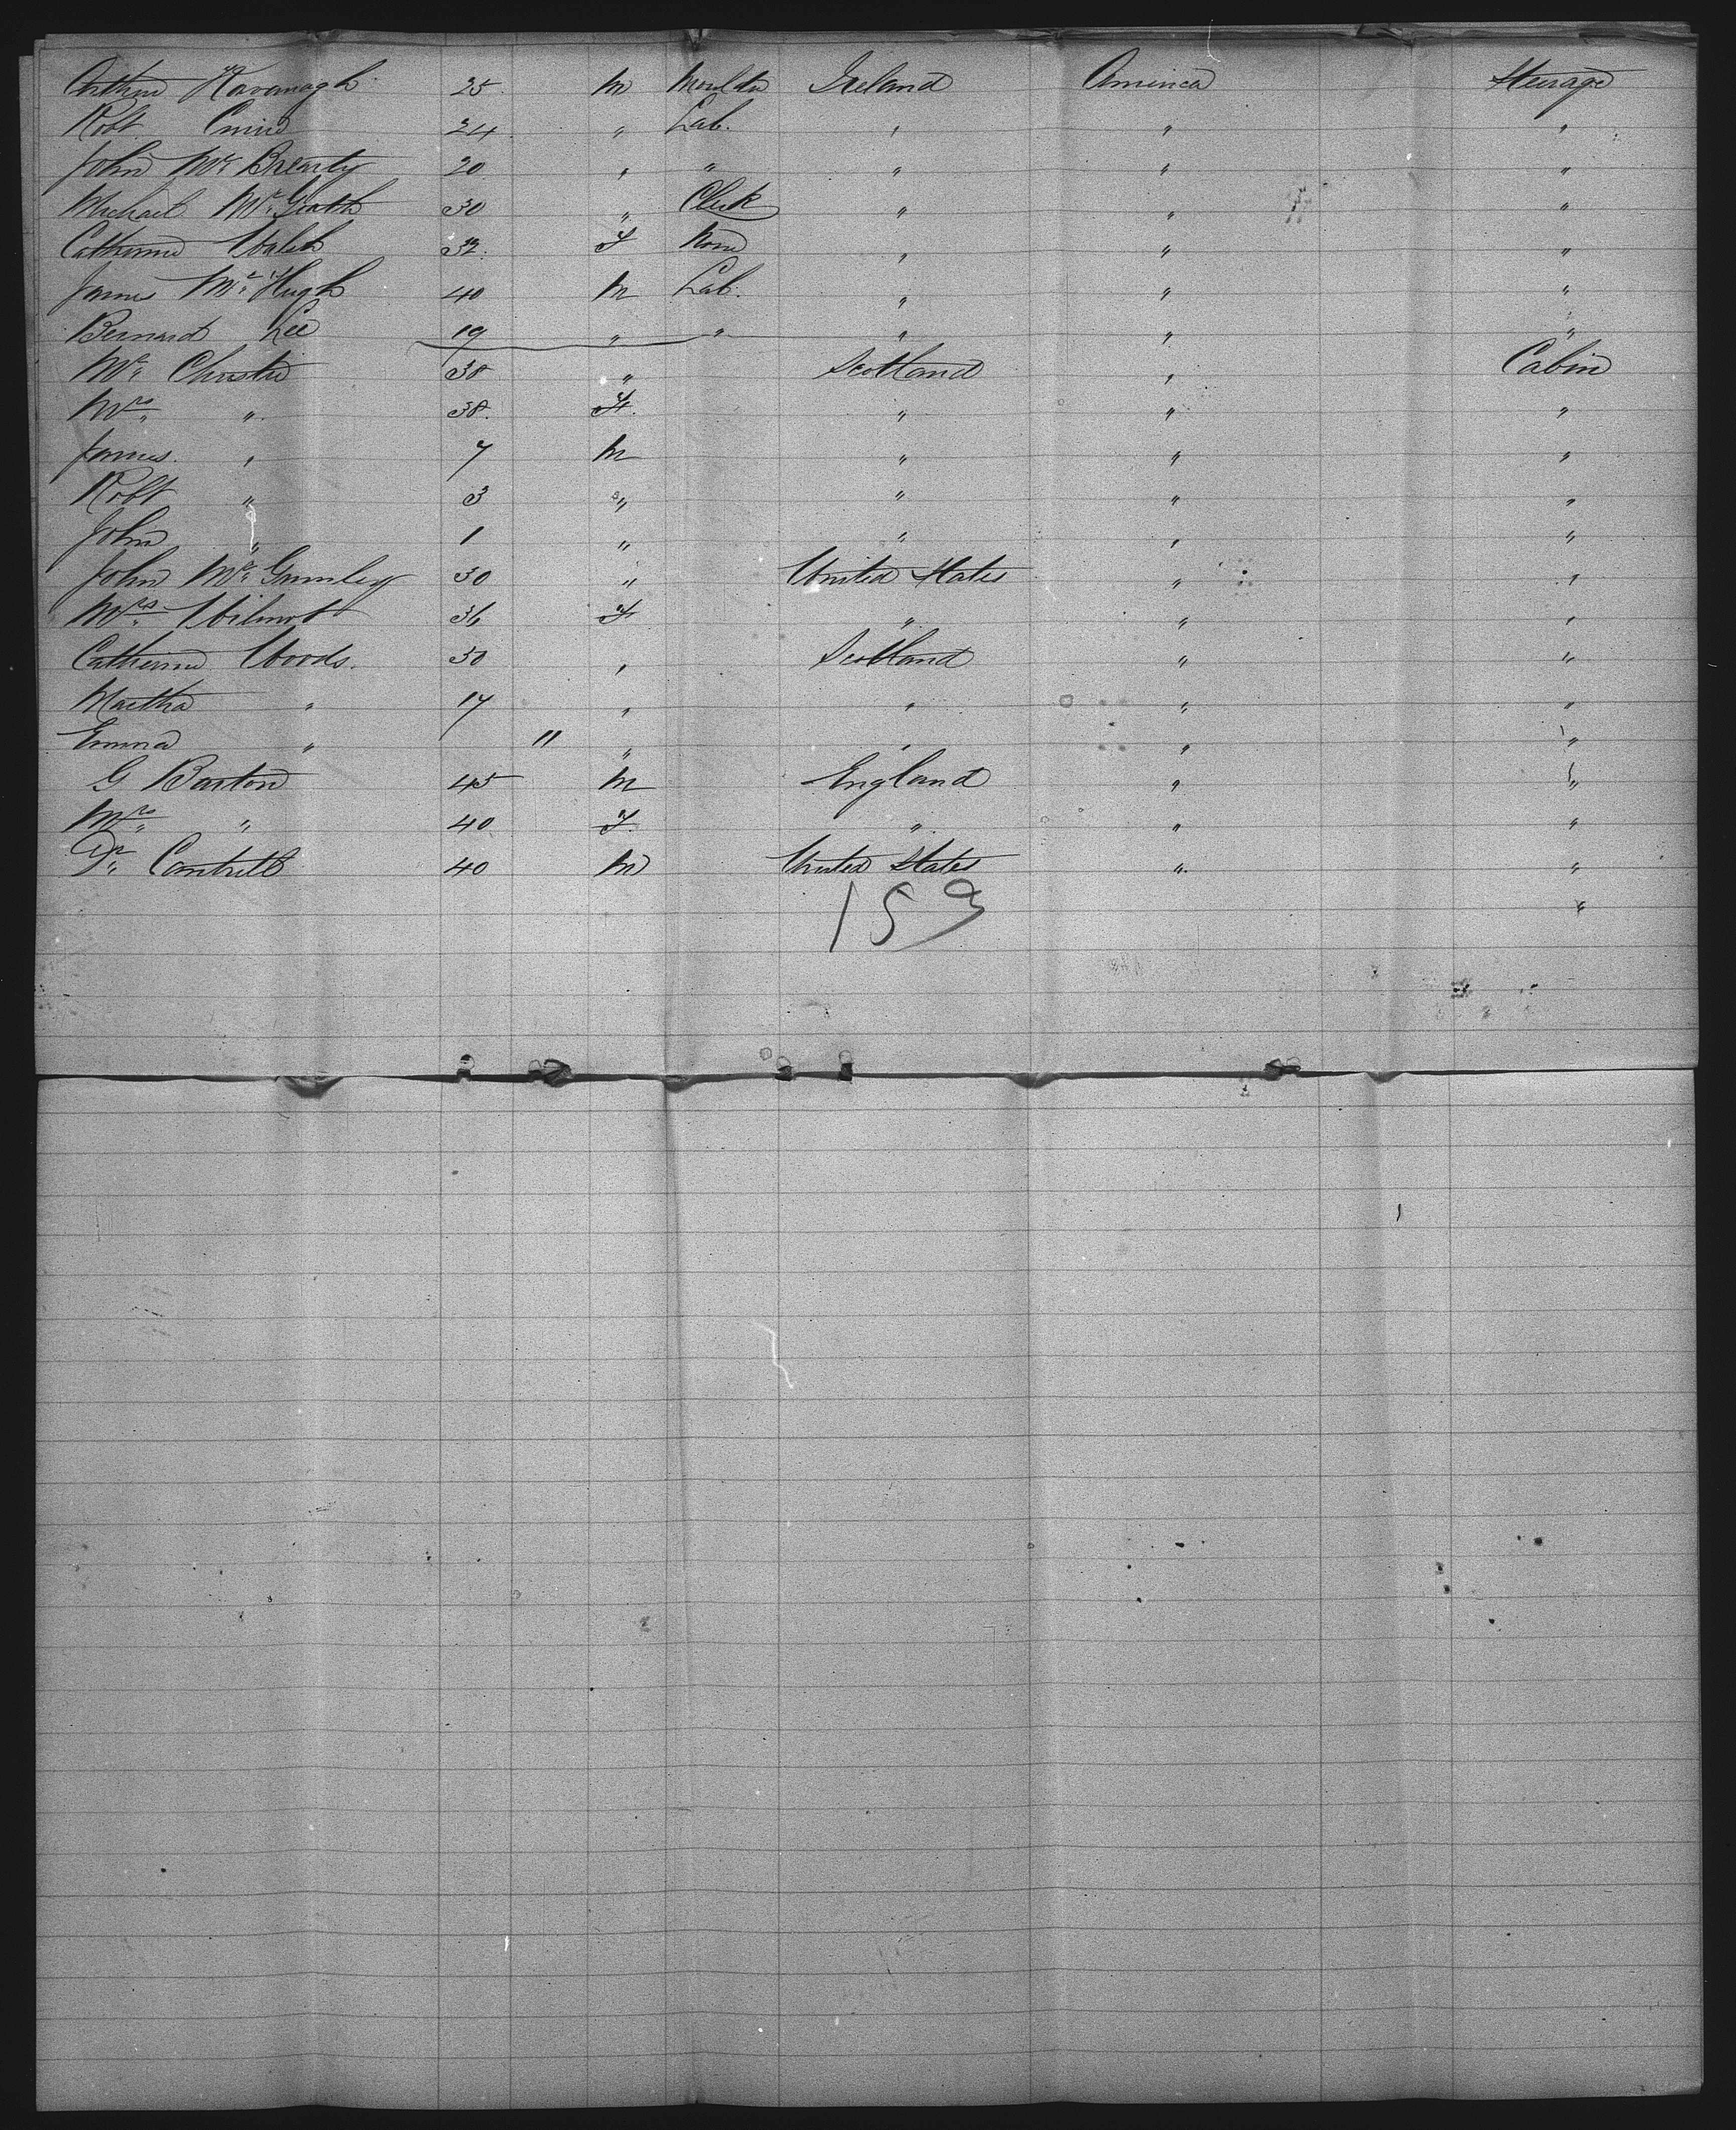 Arthur Kavanagh 25 M Moulder Ireland America Steerage
Robt 24 " Lab. " " "
John Mc Brearty 20 " " " " "
Michael Mc Grath 30 " Clerk " " "
Catherine Walsh 32 F None " " "
James Mc Hugh 40 M Lab. " " "
Bernard Lee 19 " " " " "
Mr Christie 38 " Scotland " Cabin
Mrs " 38 F " " "
James " 7 M " " "
Robt " 3 " " " "
John " 1 " " " "
John Mc Gumley 30 " United States " "
Mrs Wilmot 36 F " " "
Catherine Woods. 30 " Scotland " "
Martha " 17 " " " "
Emma " 11 " " " "
G Barton 45 M England " "
Mrs " 40 F " " "
Dr Cantrell 40 M United States " "
"
159